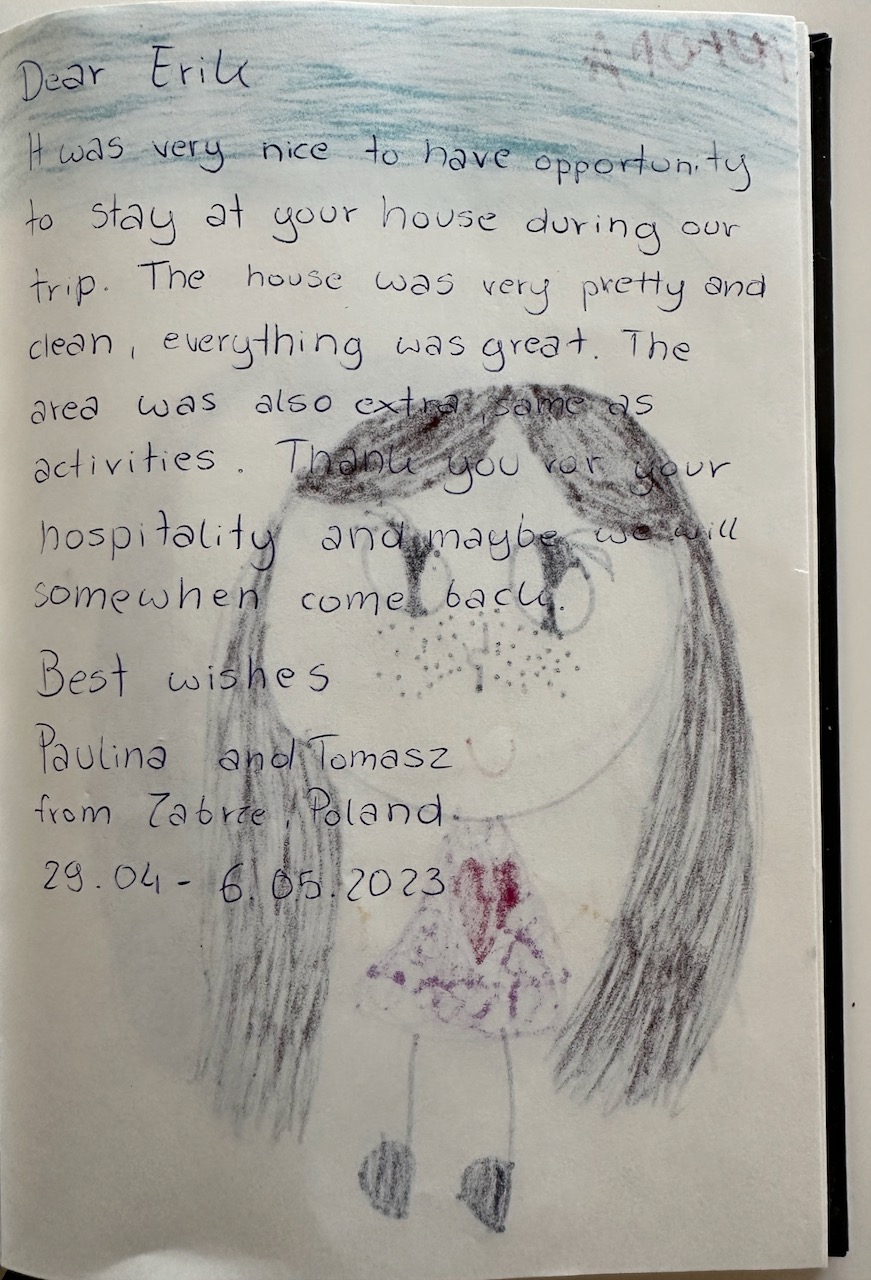 Dear Erik
It was very nice to have opportunity
to stay at your house during our
trip. The house was very pretty and
clean, everything was great. The
area was also extra, same as
activities. Thank you for your
hospitality and maybe we will
somewhen come back.
Best wishes
Paulina and Tomasz
from Zabrze, Poland.
29.04 - 6.05.2023